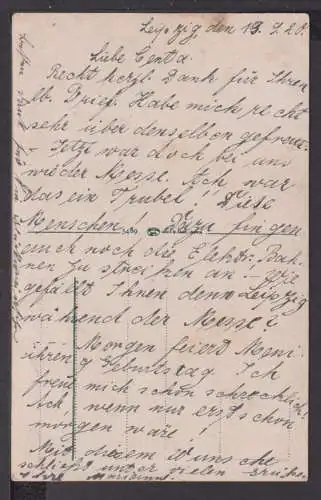 Leipzig den 13.9.20.
Liebe Centa.
Recht herzl. Dank für Ihren
lb. Brief. Habe mich recht
sehr über denselben gefreut.
- Jetzt war doch bei uns
wieder Messe. Ach, war
das ein Trubel! Diese
Menschen! Dazu fingen
auch noch die Elektr. Bah-
nen zu streichen an! - Wie
gefällt Ihnen denn Leipzig
während der Messe?
Morgen feiert Meni
ihren Geburtstag. Ich
freue mich schon schrecklich!
Ach, wenn nur erst schon
morgen wäre!
Mit diesem Wunsche
schließt unter vielen